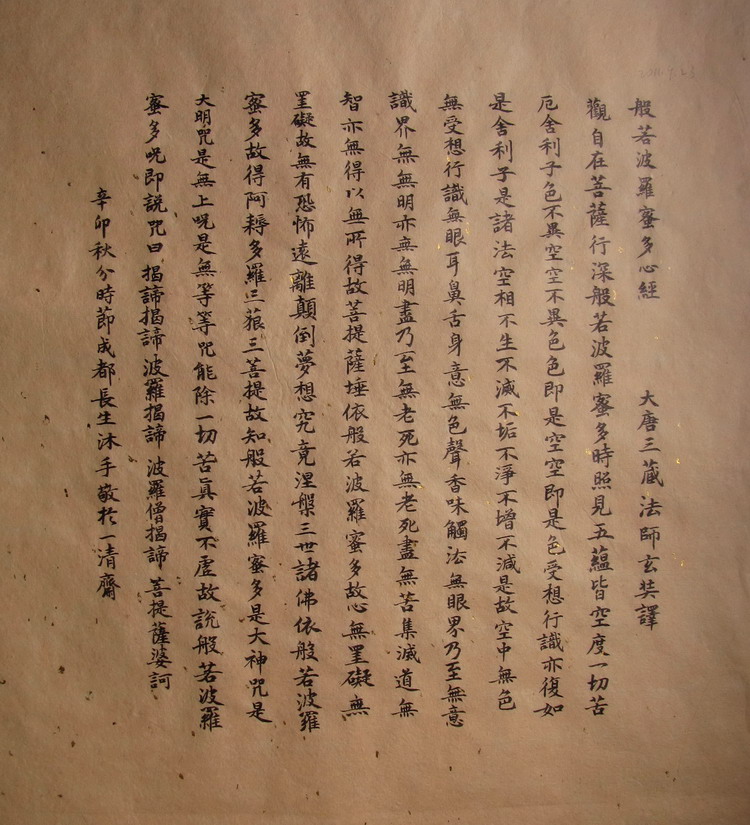 般若波羅蜜多心經 大唐三藏法師玄奘譯
觀自在菩薩行深般若波羅蜜多時照見五蘊皆空度一切苦
厄舍利子色不異空空不異色色即是空空即是色受想行識亦復如
是舍利子是諸法空相不生不滅不垢不淨不增不減是故空中無色
無受想行識無眼耳鼻舌身意無色聲香味觸法無眼界乃至無意
識界無無明亦無無明盡乃至無老死亦無老死盡無苦集滅道無
智亦無得以無所得故菩提薩埵依般若波羅蜜多故心無罣礙無
罣礙故無有恐怖遠離顛倒夢想究竟涅槃三世諸佛依般若波羅
蜜多故得阿耨多羅三藐三菩提故知般若波羅蜜多是大神咒是
大明咒是無上咒是無等等咒能除一切苦真實不虛故說般若波羅
蜜多咒即說咒曰 揭諦揭諦 波羅揭諦 波羅僧揭諦 菩提薩婆訶
辛卯秋分時節成都長生沐手敬於一清齋